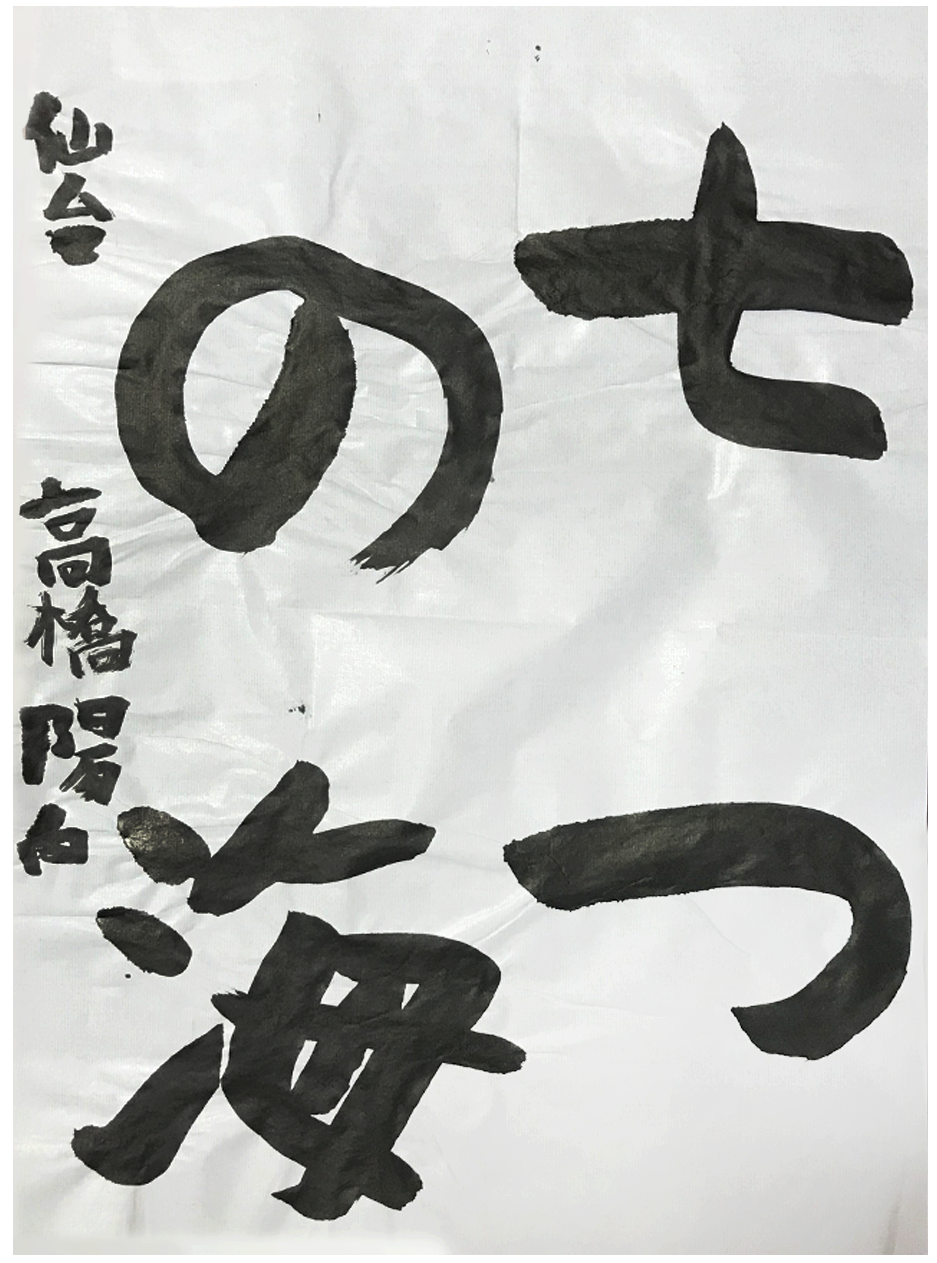 七つ
の海
仙台 高橋陽